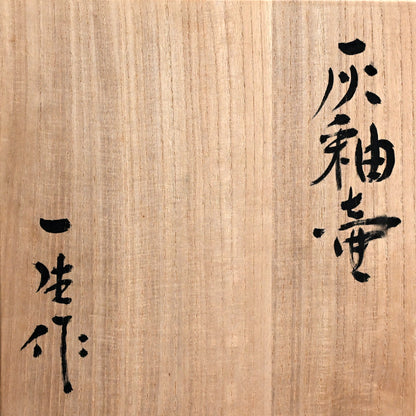 灰釉壷
一生作